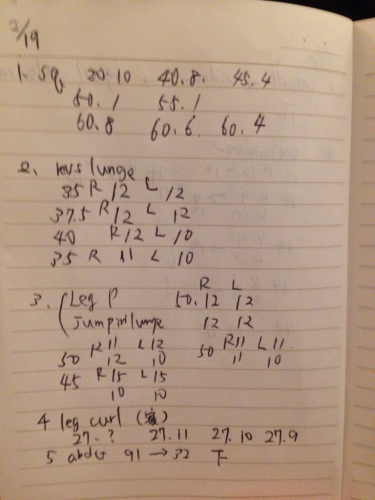 2/19
1. sq. 20.10 40.8. 45.4
50.1 55.1
60.8 60.6. 60.4
2. revs lunge
35 R 12 L 12
37.5 R 12 L 12
40 R 12 L 10
35 R 11 L 10
R L
3. Leg P 50. 12 12
Jumpin lunge 12 12
50 R 11 L 12 50 R 11 L 11
12 10 11 10
45 R 15 L 15
10 10
4 leg curl
27.? 27.11 27.10 27.9
5 abdu 91 → 32 下